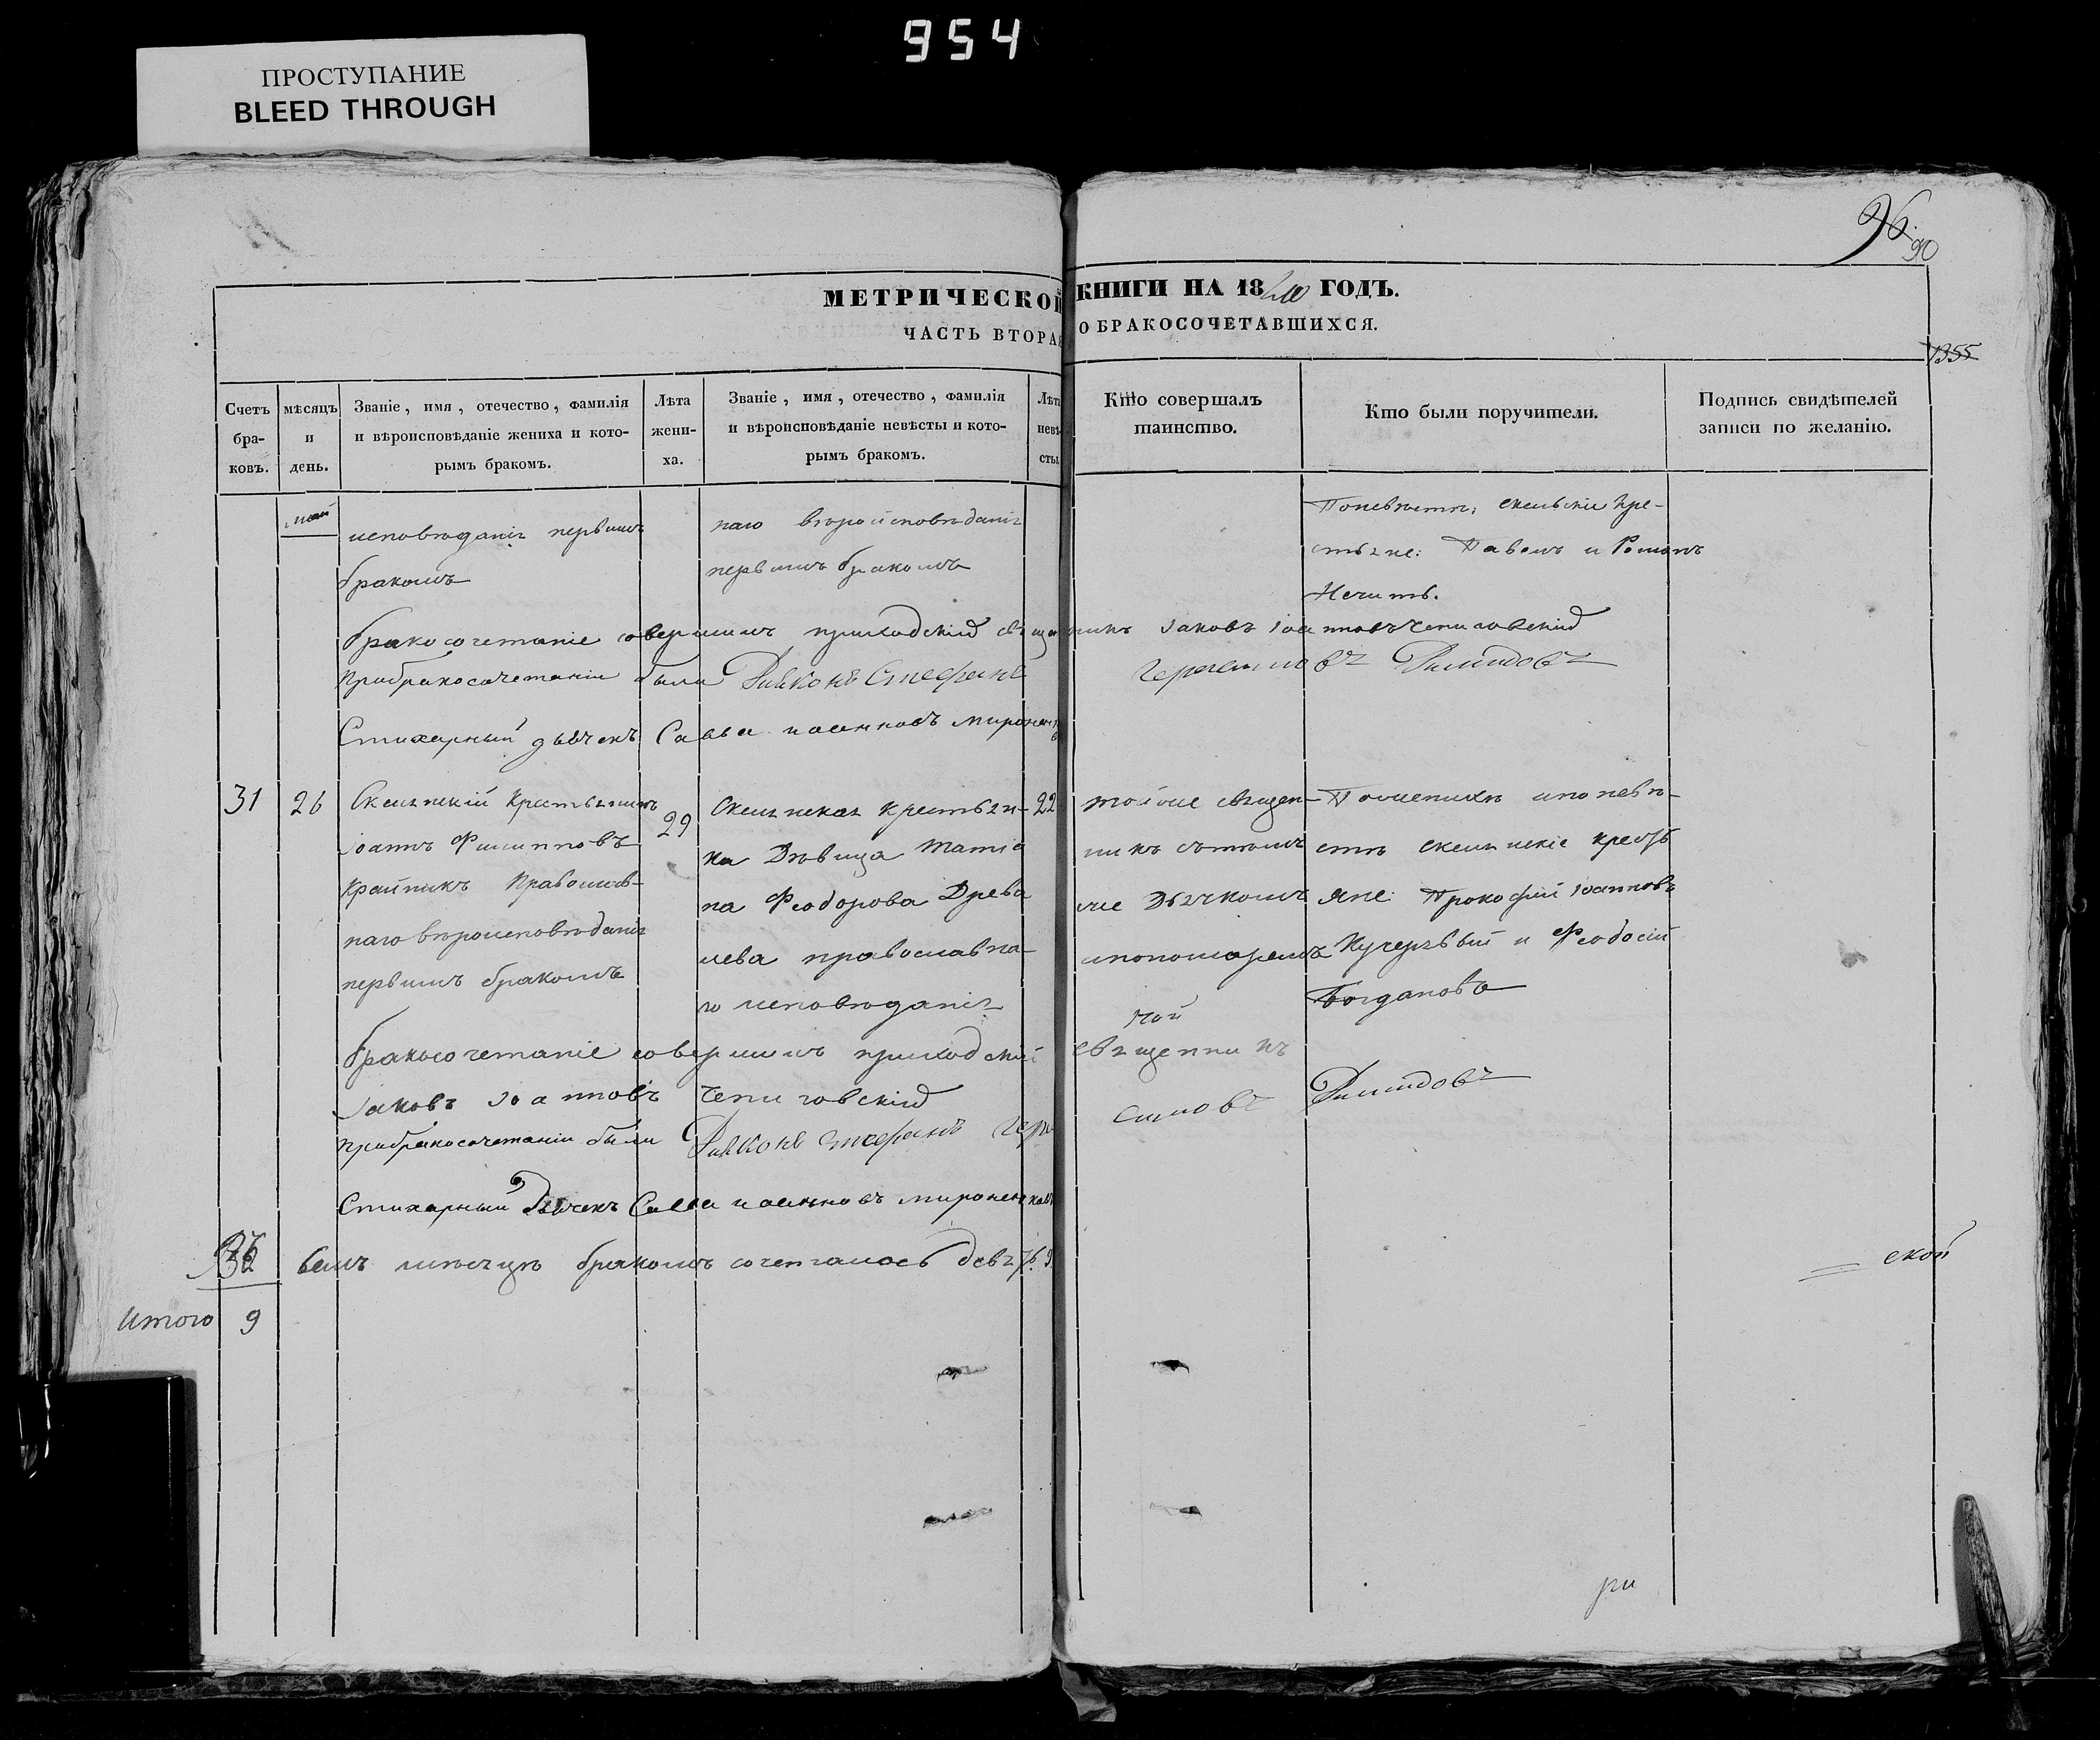 954
ПРОСТУПАНИЕ
BLEED THROUGH
96
90
МЕТРИЧЕСКОЙ КНИГИ НА 1840 ГОДЪ.
ЧАСТЬ ВТОРАЯ О БРАКОСОЧЕТАВШИХСЯ.
1355
Счетъ браковъ.
мѣсяцъ и день.
Званіе, имя, отечество, фамилія
и вѣроисповѣданіе жениха и кото-
рымъ бракомъ.
Лѣта
жени-
ха.
Званіе, имя, отечество, фамилія
и вѣроисповѣданіе невѣсты и кото-
рымъ бракомъ.
Лѣта
невѣ-
сты.
Кто совершалъ
таинство.
Кто были поручители.
Подпись свидѣтелей
записи по желанію.
май
исповѣданія первымъ
бракомъ
наго вѣроисповѣданія
первымъ бракомъ
Поневѣстѣ: скельскіе кре-
стьяне: Павелъ и Романъ
бракосочетаніе совершилъ приходскій священникъ Іаковъ Іоанновъ
Прибракосочетаніи были Диаконъ Стефанъ Демидовъ
Стихарный дьячекъ Савва иоанновъ
31
26
Скельскій крестьянинъ
Іоаннъ Филипповъ
Крайникъ Православ-
наго вѣроисповѣданія
первымъ бракомъ
29
Скельская крестьян-
ка Дѣвица Татіа
на Феодорова Древа
лева православна-
го исповѣданія
22
тойже священ-
никъ сътѣмъ
же Дьячкомъ
ипономаремъ
Поженихѣ ипоневѣ-
стѣ скельскіе кресть
яне: Прокофій Іоанновъ
Кучерявый и Феодосій
Богдановъ
бракосочетаніе совершилъ приходскій священникъ
Іаковъ Іоанновъ
Прибракосочетаніи были Диаконъ Стефанъ Демидовъ
Стихарный Дьячекъ Савва иоанновъ
всемъ мѣсяцѣ бракомъ сочеталось девять 9
ской
итого 9
ри